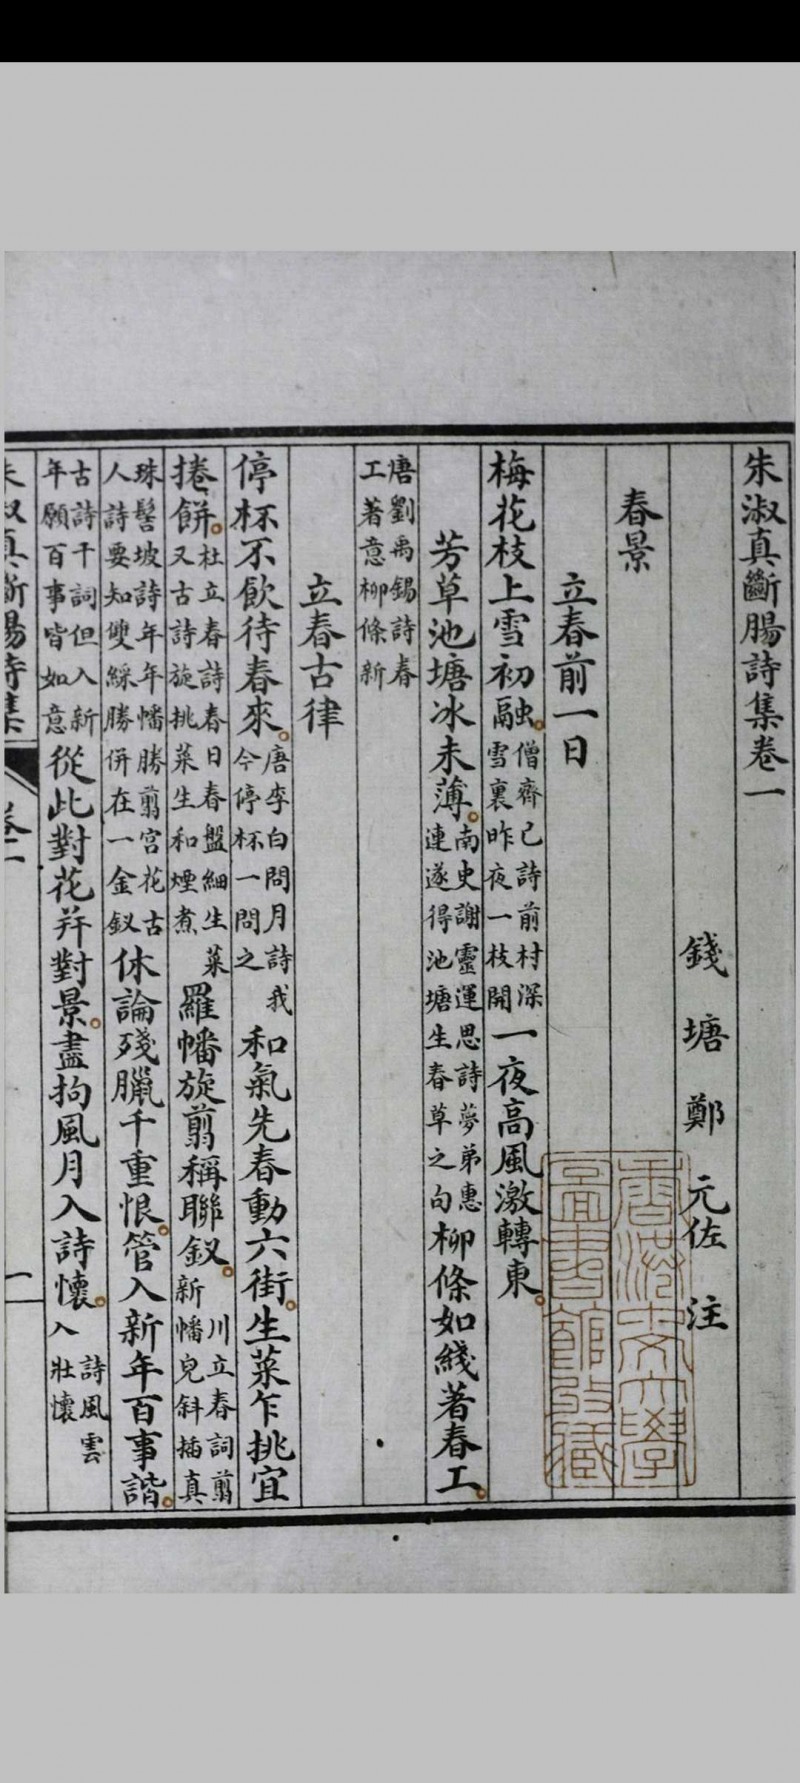 朱淑真斷腸詩集卷一
錢塘鄭元佐注
春景
立春前一日
梅花枝上雪初融。僧齊己詩前村深雪裏昨夜一枝開一夜高風激轉東。
芳草池塘冰未薄。南史謝靈運思詩夢弟惠連遂得池塘生春草之句柳條如綫著春工。
唐劉禹錫詩春工著意柳條新
立春古律
停杯不飲待春來。唐李白問月詩我今停杯一問之和氣先春動六街。生菜乍挑宜
捲餅。杜立春詩春日春盤細生菜又古詩旋挑菜生和煙煮羅幡旋翦稱聯釵。川立春詞翦新幡兒斜插真
珠髻坡詩年年幡勝翦宮花古人詩要知雙綵勝併在一金釵休論殘臘千重恨。管入新年百事諧。
古詩千詞但入新年願百事皆如意從此對花幷對景。盡拘風月入詩懷。詩風雲入壯懷
朱淑真斷腸詩集 卷一 一
香港中文大學
圖書館